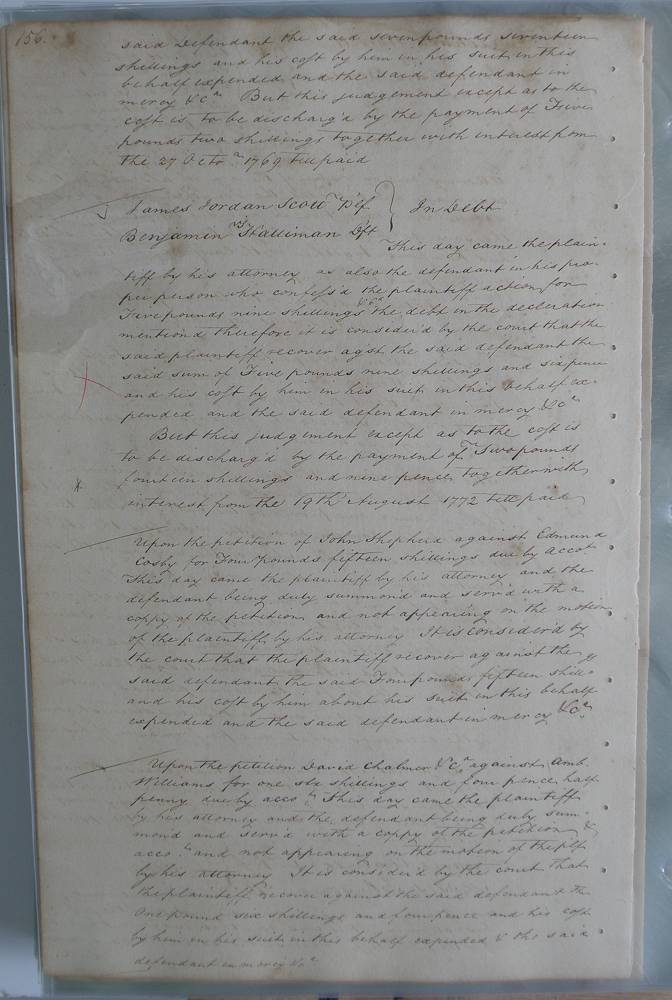 156.
said Defendant the said seven pounds seventeen
shillings and his cost by him in his suit in this
behalf expended and the said defendant in
mercy &ca. But this judgement except as to the
cost is to be discharg'd by the payment of Five
pounds two shillings together with interest from
the 27 Octo. 1769 till paid
James Jordan Scott Plf
vs
Benjamin Halliman Dft
In Debt
This day came the plain-
tiff by his attorney as also the defendant in his pro-
per person who confess'd the plaintiff action for
Five pounds nine shillings & 6d the debt in the decleration
mention'd therefore it is consider'd by the court that the
said plaintiff recover agst the said defendant the
said sum of Five pounds nine shillings and six pence
and his cost by him in his suit in this behalf ex-
pended and the said defendant in mercy &ca
But this judgement except as to the cost is
to be discharg'd by the payment of Two pounds
fourteen shillings and nine pence together with
interest from the 19th August 1772 till paid
Upon the petition of John Shepherd against Edmund
Cosby for Four pounds fifteen shillings due by accot
This day came the plaintiff by his attorney and the
defendant being duly summon'd and serv'd with a
coppy of the petition and not appearing on the motion
of the plaintiff by his attorney It is consider'd by
the court that the plaintiff recover against the
said defendant the said Four pounds fifteen shill-
and his cost by him about his suit in this behalf
expended and the said defendant in mercy &ca
Upon the petition David Chalmer & Ca. against Amb.
Williams for one six shillings and four pence half
penny due by acco. This day came the plaintiff
by his attorney and the defendant being duly sum-
mon'd and serv'd with a coppy of the petition &
acco. and not appearing on the motion of the plf
by his attorney It is consider'd by the court that
the plaintiff recover against the said defendant the
One pound six shillings and four pence and his cost
by him in his suit in this behalf expended & the said
defendant in mercy &ca